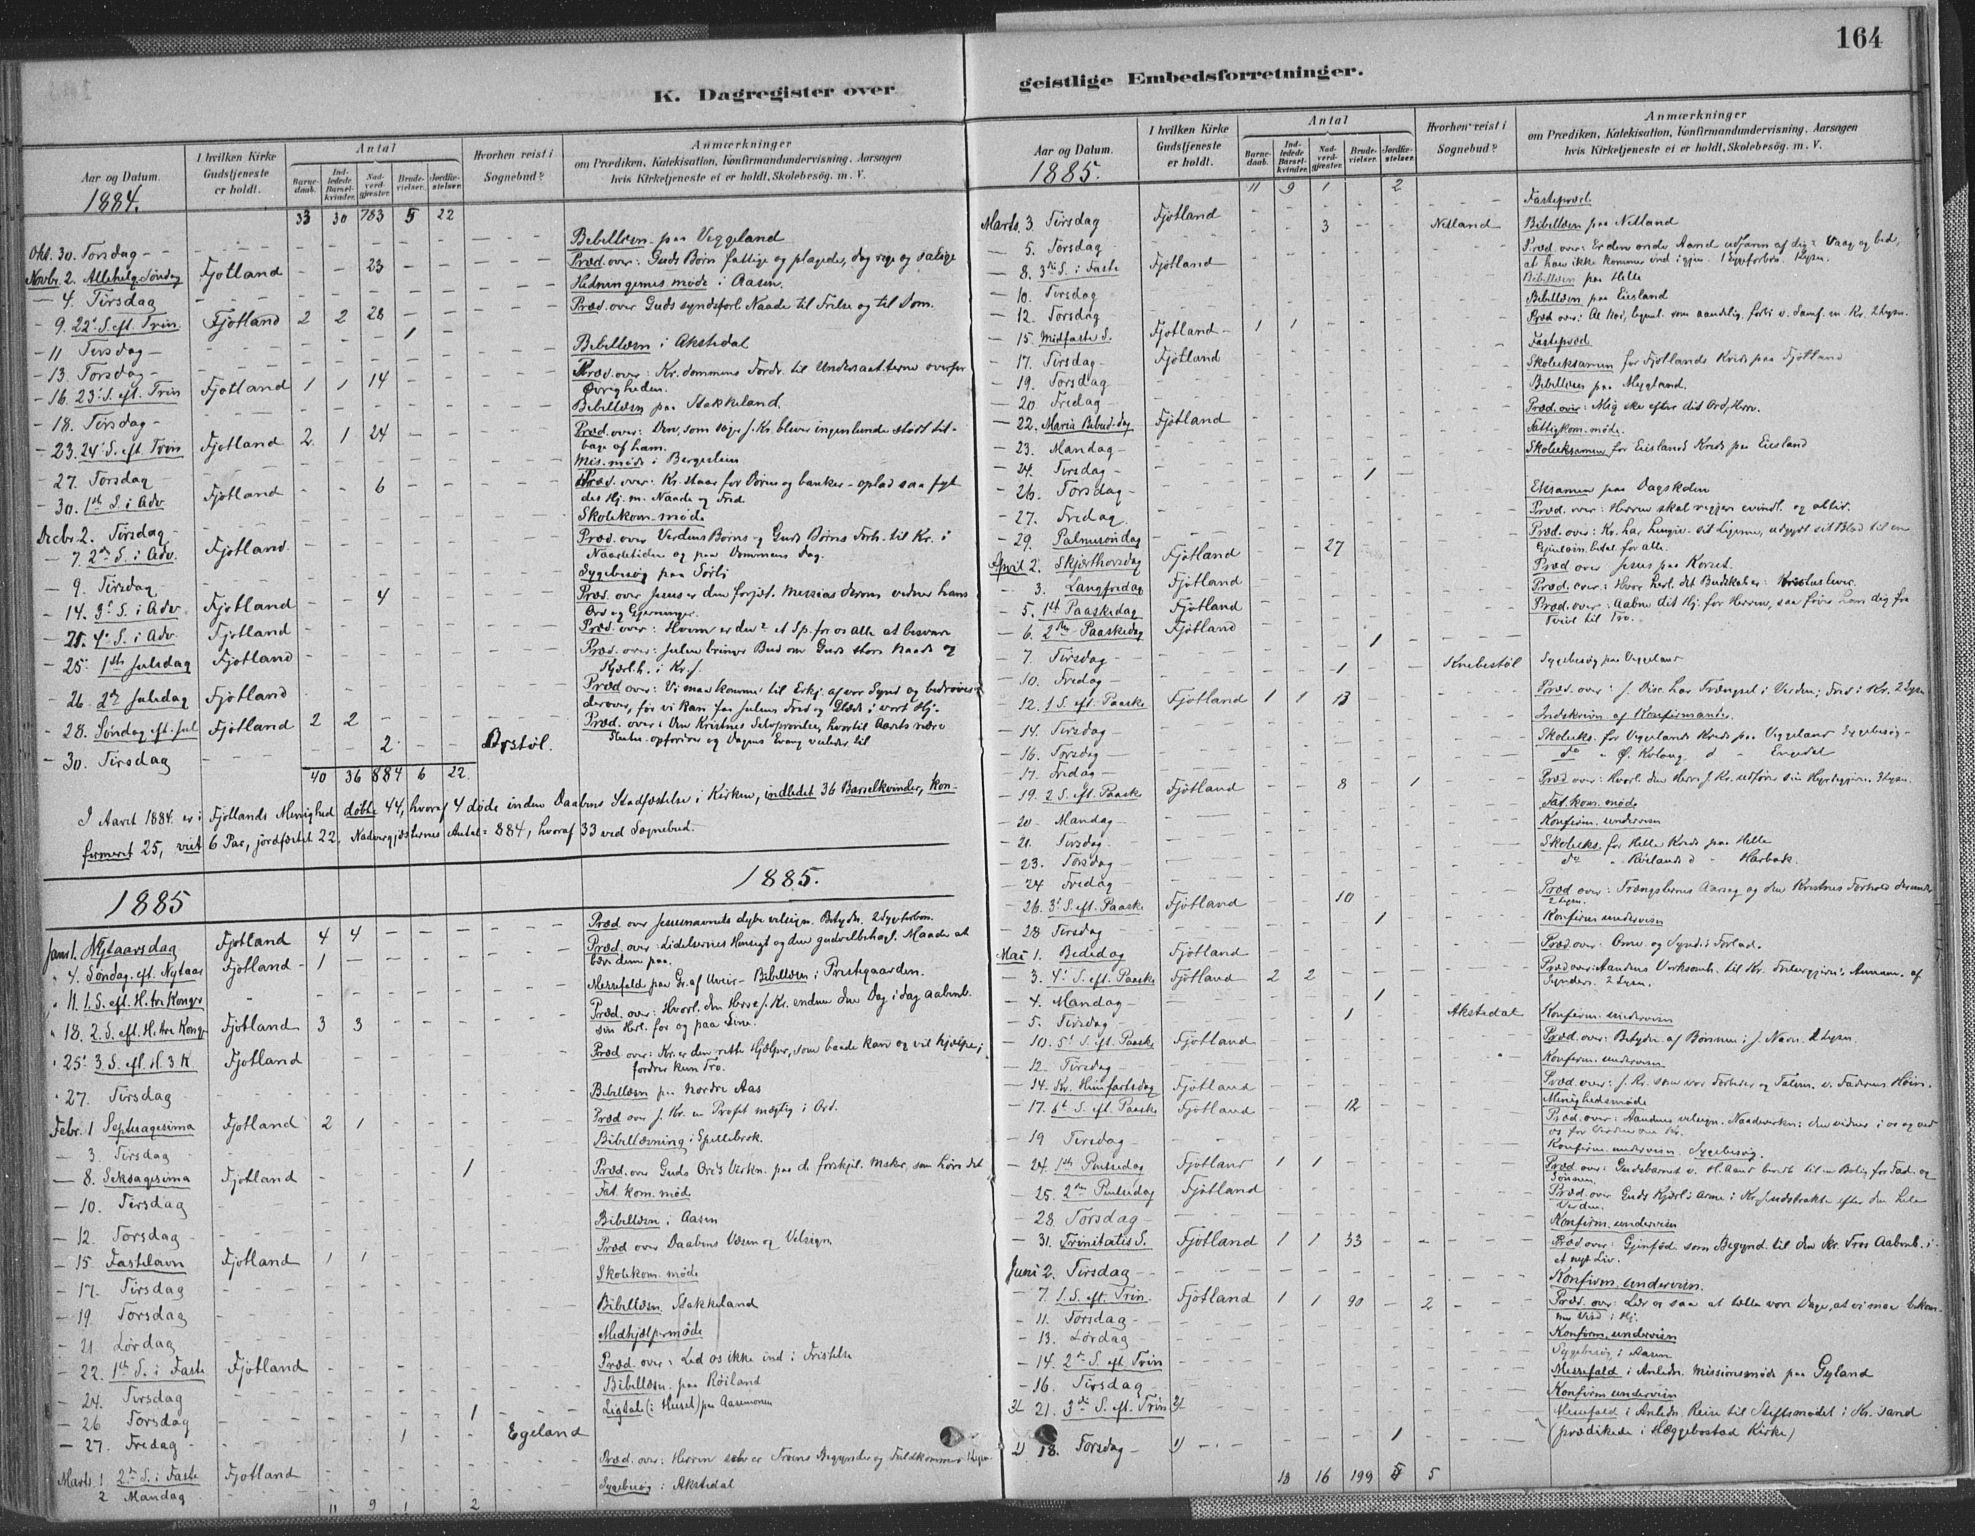 164
K. Dagregister over
geistlige Embedsforretninger.
Aar og Datum.
1884.
I hvilken Kirke Gudstjeneste er holdt.
Antal
Barnedaab.
Indledede Barselkvinder.
Nadverdgjester.
Brudevielser.
Jordfæstelser.
Hvorhen reist i Sognebud?
Anmærkninger
om Prædiken, Katekisation, Konfirmandundervisning, Aarsagen
hvis Kirketjeneste ei er holdt, Skolebesøg. m. V.
33 30 783 5 22
Okt. 30. Torsdag Bibellæsn. paa Veggeland
Novbr. 2. Allehelg. Søndag Fjotland 23 Præd. over: Guds Børn fattige og plagede, dog rige og salige
4. Tirsdag Hedningemis. møde i Aasen.
9. 22. S. eft. Trin. Fjotland 2 2 28 Præd. over Guds syndsforl. Naade til Frelse og til Dom.
11 Tirsdag 1
13. Torsdag Bibellæsn i Akstedal
16. 23. S. eft. Trin Fjotland 1 1 14 Præd. over: Kr.dommens Fordr. til Undersaatterne overfor Øvrigheden.
18. Tirsdag Bibellæsn paa Stakkeland.
23. 24. S. eft. Trin Fjotland 2 1 24 Præd. over: Den, som søge J. Kr. bliver ingenlunde stødt tilbage af ham.
27. Torsdag Mis. møde i Bergestein
30. 1st S. i Adv. Fjotland 6 Præd. over: Kr. staar for Døren og banker - oplad saa fyldes Hj. m. Naade og Fred
Decbr. 2. Tirsdag Skolekom. møde
7. 2n S. i Adv. Fjotland Præd. over Verdens Børns og Guds Børns Forh. til Kr. i Naadetiden og paa Dommens Dag.
9. Tirsdag Sygebesøg paa
14. 3. S. i Adv. Fjotland 4 Præd. over Jesus er den forjæt. Messias derom vidner hans Ord og Gjerninger.
21. 4. S. i Adv. Fjotland Præd. over: Hvem er du? et Sp. for os alle at besvare
25. 1ste Juledag Fjotland Præd. over: Julen bringer Bud om Guds store Naade og Kjærlh. i Kr. J.
26. 2n Juledag Fjotland Præd over: Vi maa komme til Erkj. af vor Synd og bedrøves derover, før vi kan faa Julens Fred og Glæde i vort Hj.
28. Søndag eft. Jul Fjotland 2 2 Præd. over: Den Kristnes Selvprøvelse, hvortil Aarets nære
30. Tirsdag 2 Ørstøl.
40 36 884 6 22
I Aaret 1884 er i Fjotlands Menighed døbte 44, hvoraf 4 døde inden Daabens Stadfæstelse i Kirken, indledet 36 Barselkvinder, kon-
firmeret 25, viet 6 Par, jordfæstet 22, Nadvergjesternes Antal = 884, hvoraf 33 ved Sognebud.
1885
1885.
Janr 1. Nytaarsdag Fjotland 4 4 Præd over Jesusnavnets dybe velsign. Betydn.
4. Søndag eft. Nytaar Fjotland 1 Præd. over: Lidelsernes Hensigt og den gudvelbehagl. Maade at bære dem paa.
11. 1. S. eft. H. tre Konger Messefald paa Gr. af Uveir - Bibellæsn i Prestegaarden.
18. 2. S. eft. H. tre Konger Fjotland 3 3 Præd. over: Hvorl. den Herre J. Kr. endnu den Dag i dag aabenb. sin Herl. for og paa Sine.
25. 3. S. eft. H. 3 K. Fjotland Præd over: Kr. er den rette Hjælper, som baade kan og vil hjælpe; fordrer kun Tro.
27. Tirsdag Bibellæsn paa Nordre Aas
Febr. 1 Septuagesima Fjotland 2 1 Præd over J. Kr. en Profet mægtig i Ord.
3. Tirsdag Bibellæsning i Spellebrok.
8. Seksagesima Fjotland 1 Præd. over Guds Ords Virkn. paa de forskjel. Msker, som høre det
10. Tirsdag Fat. kom. møde
12. Torsdag Bibellæsn i Aasen
15. Fastelavn Fjotland 1 1 Præd over Daabens Væsen og Velsign
17. Tirsdag Skolekom. møde
19 Torsdag Bibellæsn. Stakkeland
21 Lørdag Medhjælpermøde
22. 1ste S. i Faste Fjotland Præd. over: Led os ikke ind i Fristelse
24. Tirsdag Bibellæsn. paa Røiland
26 Torsdag 1 Ligtale (i Huset) paa Aasmonen
27. Fredag 1 Egeland
Marts 1 2n S. i Faste Fjotland Præd. over: Herren selv er Troens Begynder og Fuldkommer
2 Mandag Sygebesøg i Akstedal
11 9 1 2
Aar og Datum.
1885.
I hvilken Kirke Gudstjeneste er holdt.
Antal
Barnedaab.
Indledede Barselkvinder.
Nadverdgjester.
Brudevielser.
Jordfæstelser.
Hvorhen reist i Sognebud?
Anmærkninger
om Prædiken, Katekisation, Konfirmandundervisning, Aarsagen
hvis Kirketjeneste ei er holdt, Skolebesøg. m. V.
11 9 1 2
Marts. 3 Tirsdag Fjotland Fastepræd.
5. Torsdag 3 Netland Bibellæsn paa Netland
8. 3die S. i Faste Fjotland Præd. over: Er den onde Aand udfaren af dig? Vaag og bed, at han ikke kommer ind igjen.
10. Tirsdag Bibellæsn paa Helle
12. Torsdag Bibellæsn paa Eiesland
15. Midfaste S. Fjotland 1 1
17. Tirsdag Fjotland Fastepræd
19. Torsdag Skoleeksamen for Fjotlands Kreds paa Fjotland
20 Fredag Bibellæsn paa Mygland.
22. Maria Bebud. dag Fjotland Præd. over: Mig ske efter dit Ord, Herre.
23. Mandag Fattigkom. møde.
24. Tirsdag Skoleeksamen for Eieslands Kreds paa Eiesland
26. Torsdag 1
27. Fredag Eksamen paa Dagskolen
29. Palmesøndag Præd. over: Herren skal regjere evindl. og altid.
April 2. Skjærthorsdag Fjotland 27 Præd. over: Kr. har hengiv. sit Legeme, udgydt sit Blod til en Gjenløsn.betal. for alle.
3. Langfredag Fjotland Præd over Jesus paa Korset.
5. 1ste Paaskedag Fjotland Præd. over: Hvor herl. det Budskab er: Kristus lever.
6. 2den Paaskedag Fjotland Præd. over: Aabne dit Hj. for Herren, saa fører han dig fra Tvivl til Tro.
7. Tirsdag 1
10. Fredag 1 Knibestøl Sygebesøg paa Veggeland
12. 1 S. eft. Paaske Fjotland 1 1 13 Præd. over: J. Disc. har Trængsel i Verden; Fred i Kr. 2 Lysn
14. Tirsdag Indskrivn af Konfirmander.
16. Torsdag Skoleeks. for Veggelands Kreds paa Veggeland Sygebesøg
17. Fredag
19. 2 S. eft. Paaske Fjotland 8 1 Præd over: Hvorl. den Herre J. Kr. udfører sin Hyrdegjern. 3 Lysn.
20 Mandag Fat. kom. møde
21. Tirsdag Konfirm. undervisn
23. Torsdag Skoleeks. for Helle Kreds paa Helle
24 Fredag do " Røilands d " Haabak.
26. 3. S. eft. Paaske Fjotland 10 Præd over: Trængslernes Aarsag og den Kristnes Forhold derunder 2 Lysn.
28 Tirsdag 1 Konfirm. undervisn
Mai 1. Bededag Fjotland Præd. over: Omv. og Synds Forlad.
3. 4. S. eft. Paaske Fjotland 2 2 Præd over: Aandens Virksomh. til Kr. Frelsergjern.s Annam. af Synderen. 2 Lysn.
4. Mandag 1
5. Tirsdag 1 Akstedal Konfirm. undervisn
10. 5. S. eft. Paaske Fjotland Præd. over: Betydn. af Bønnen i J. Navn. 2 Lysn.
12. Tirsdag Konfirm. undervisn
14. Kr. Himfartsdag Fjotland
17. 6t S. eft. Paaske Fjotland 12 Menighedsmøde
19 Tirsdag Konfirm. undervisn. Sygebesøg.
24. 1ste Pintsedag Fjotland 1 1
25. 2den Pintsedag Fjotland Præd. over Guds Kjærl.s Arme i Kr. J. udstrakte efter den hele Verden.
28 Torsdag Konfirm. undervisn
31. Trinitatis S. Fjotland 1 1 33 Præd over: Gjenfød. som Begynd. til den Kr. Tros Aabenb. i et nyt Liv.
Juni 2. Tirsdag Konfirm. undervisn.
7. 1. S. eft. Trin. Fjotland 1 1 90 2 Præd. over: Lær os saa at tælle vore Dage, at vi maa bekomme Visd. i Hj.
11. Torsdag
13. Lørdag Konfirm. undervisn
14. 2n S. eft. Trin Sygebesøg i Aasen
16. Tirsdag Messefald i Anledn. Missionsmøde paa Gyland
Konfirm undervisn
21. 3die S. eft. Trin Messefald i Anledn. Reise til Stiftsmødet i Kr.sand
18. Torsdag 1 (prædikede i Hæggebostad Kirke)
18 16 199 5 5